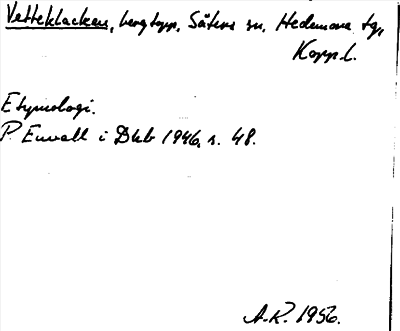 Vetteklacken, bergtopp, Säters sn, Hedemora tg,
Kopp.l.
Etymologi.
P. Envall i Dhb 1946, s. 48.
A.R. 1956.